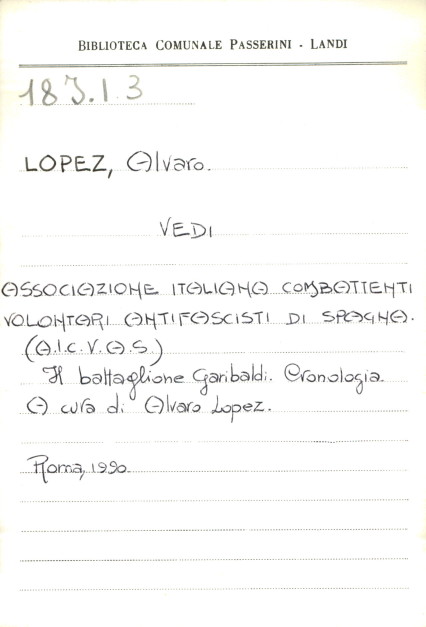 BIBLIOTECA COMUNALE PASSERINI - LANDI
18J.I.3
LOPEZ, Alvaro.
VEDI
ASSOCIAZIONE ITALIANA COMBATTENTI
VOLONTARI ANTIFASCISTI DI SPAGNA.
(A.I.C.V.A.S.)
Il battaglione Garibaldi. Cronologia.
A cura di Alvaro Lopez.
Roma, 1990.